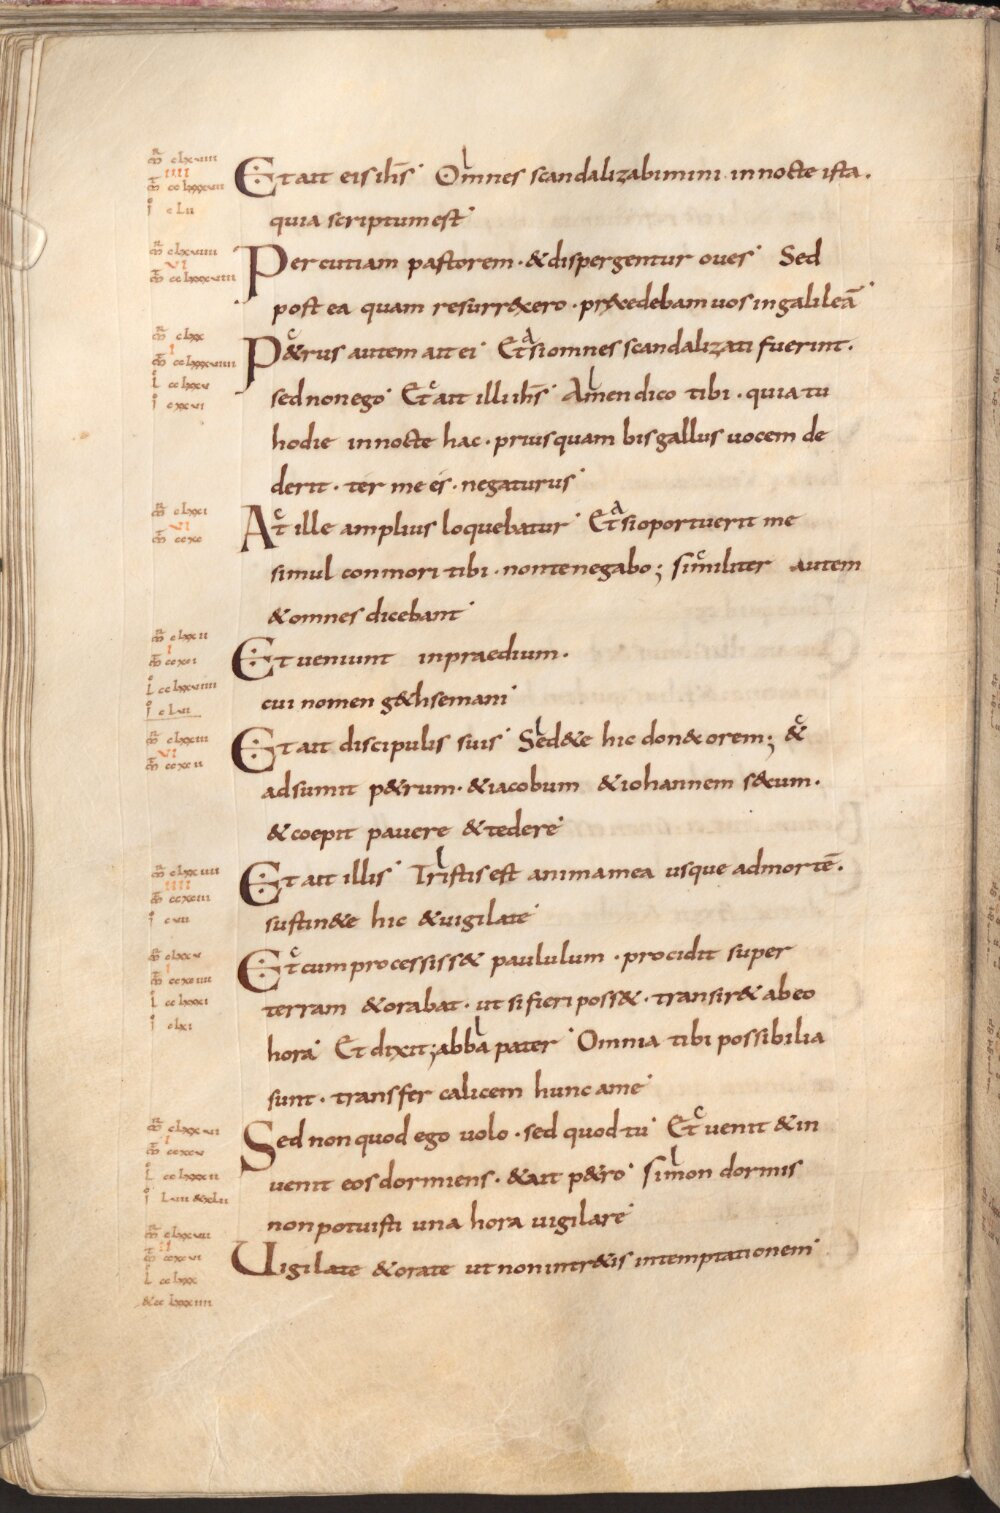 Et ait eis ihs Omnes scandalizabimini in nocte ista.
quia scriptum est
Percutiam pastorem · & dispergentur oues Sed
post ea quam resurrexero · præcedebam uos in galileā
P&rus autem ait ei Et si omnes scandalizati fuerint.
sed non ego Et ait illi ihs Amen dico tibi · quia tu
hodie in nocte hac · prius quam bis gallus uocem de
derit · ter me es · negaturus
At ille amplius loquebatur Et si oportuerit me
simul conmori tibi · non te negabo; similiter autem
& omnes dicebant
Et ueniunt in praedium.
cui nomen g&hsemani
Et ait discipulis suis Sed&e hic donec orem; &
adsumit p&rum · & iacobum & iohannem secum.
& coepit pauere & tedere
Et ait illis Tristis est anima mea usque ad mortē.
sustin&e hic & uigilate
Et cum processiss& paululum · procidit super
terram & orabat · ut si fieri poss& · transir& ab eo
hora Et dixit; abba pater Omnia tibi possibilia
sunt · transfer calicem hunc a me
Sed non quod ego uolo · sed quod tu Et uenit & in
uenit eos dormiens · & ait p&ro simon dormis
non potuisti una hora uigilare
Uigilate & orate ut non intr&is in temptationem